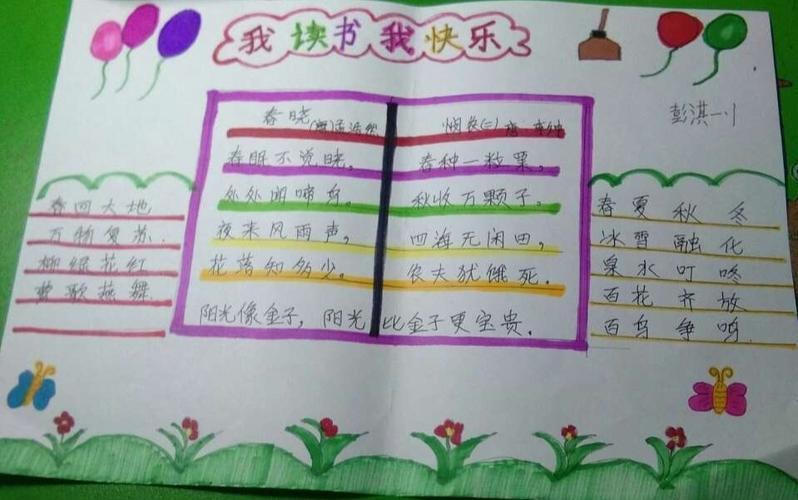 我读书我快乐
彭淇
春回大地
万物复苏.
柳绿花红
莺歌燕舞
春晓(唐)孟浩然
春眠不觉晓,
处处闻啼鸟。
夜来风雨声,
花落知多少。
悯农(二) 唐:李绅
春种一粒粟,
秋收万颗子。
四海无闲田,
农夫犹饿死.
阳光像金子, 阳光比金子更宝贵.
春夏秋冬
冰雪融化
泉水叮咚
百花齐放
百鸟争鸣.